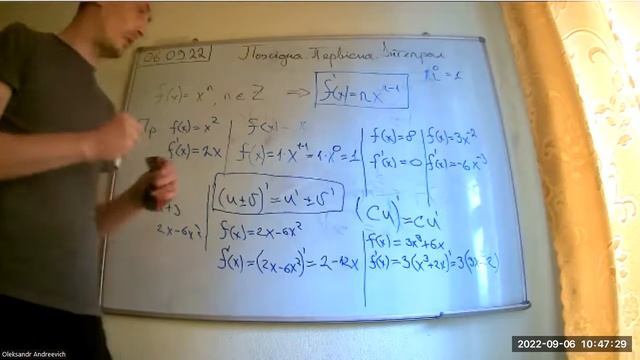 06.09.22
Похідна. Первісна. Інтеграл
n⁰ = 1
f(x) = xⁿ, n ∈ Z ⇒ f'(x) = n xⁿ⁻¹
Пр f(x) = x²
f'(x) = 2x
f(x) = x
f'(x) = 1·x¹⁻¹ = 1·x⁰ = 1
f(x) = 8
f'(x) = 0
f(x) = 3x⁻²
f'(x) = -6x⁻³
(u ± v)' = u' ± v'
(Cu)' = Cu'
+3
2x-6x²
f(x) = 2x-6x²
f'(x) = (2x-6x²)' = 2-12x
f(x) = 3x³+6x
f'(x) = 3(x³+2x)' = 3(3x
2)
Oleksandr Andreevich
2022-09-06 10:47:29